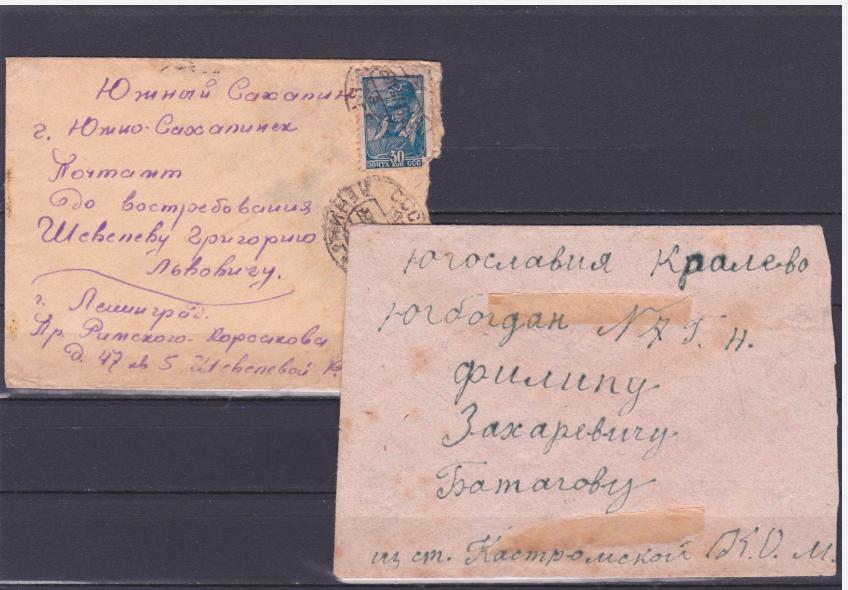 Южный Сахалин
г. Южно-Сахалинск
Почтамт
До востребования
Шевелеву Григорию
Львовичу.
г. Ленинград.
Пр. Римского-Корсакова
д. 47 кв 5 Шевелевой
30
ПОЧТА СССР
ЛЕНИН
СССР
Югославия Кралево
Югбогдан N 7 Г. н.
Филипу
Захаревичу
Батагову
из ст. Кастромской К. О. М.